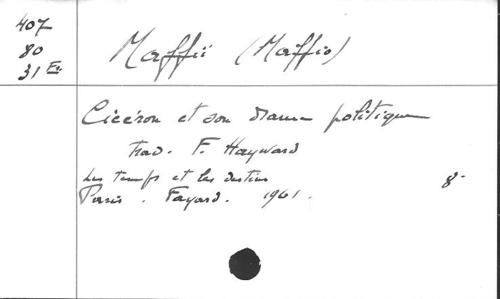 407
80
31 Fr
Maffii (Maffio)
Cicéron et son drame politique
Trad. F. Hayward
Les temps et les destins
8°
Paris. Fayard. 1961.